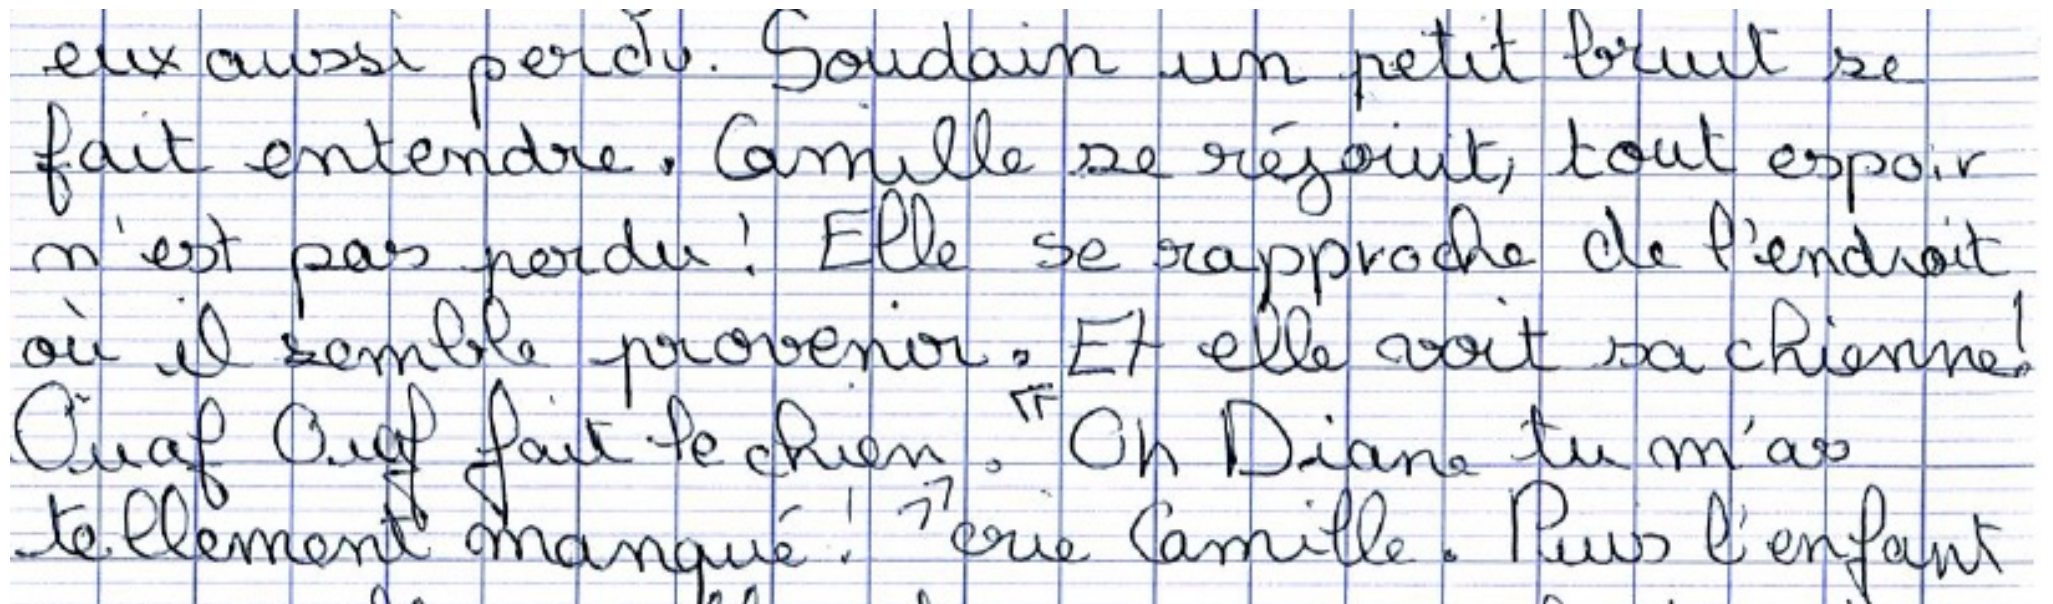 eux aussi perdu. Soudain un petit bruit se
fait entendre. Camille se réjouit, tout espoir
n'est pas perdu ! Elle se rapproche de l'endroit
où il semble provenir. Et elle voit sa chienne !
Ouaf Ouaf fait le chien. " Oh Diane tu m'as
tellement manqué ! " crie Camille. Puis l'enfant